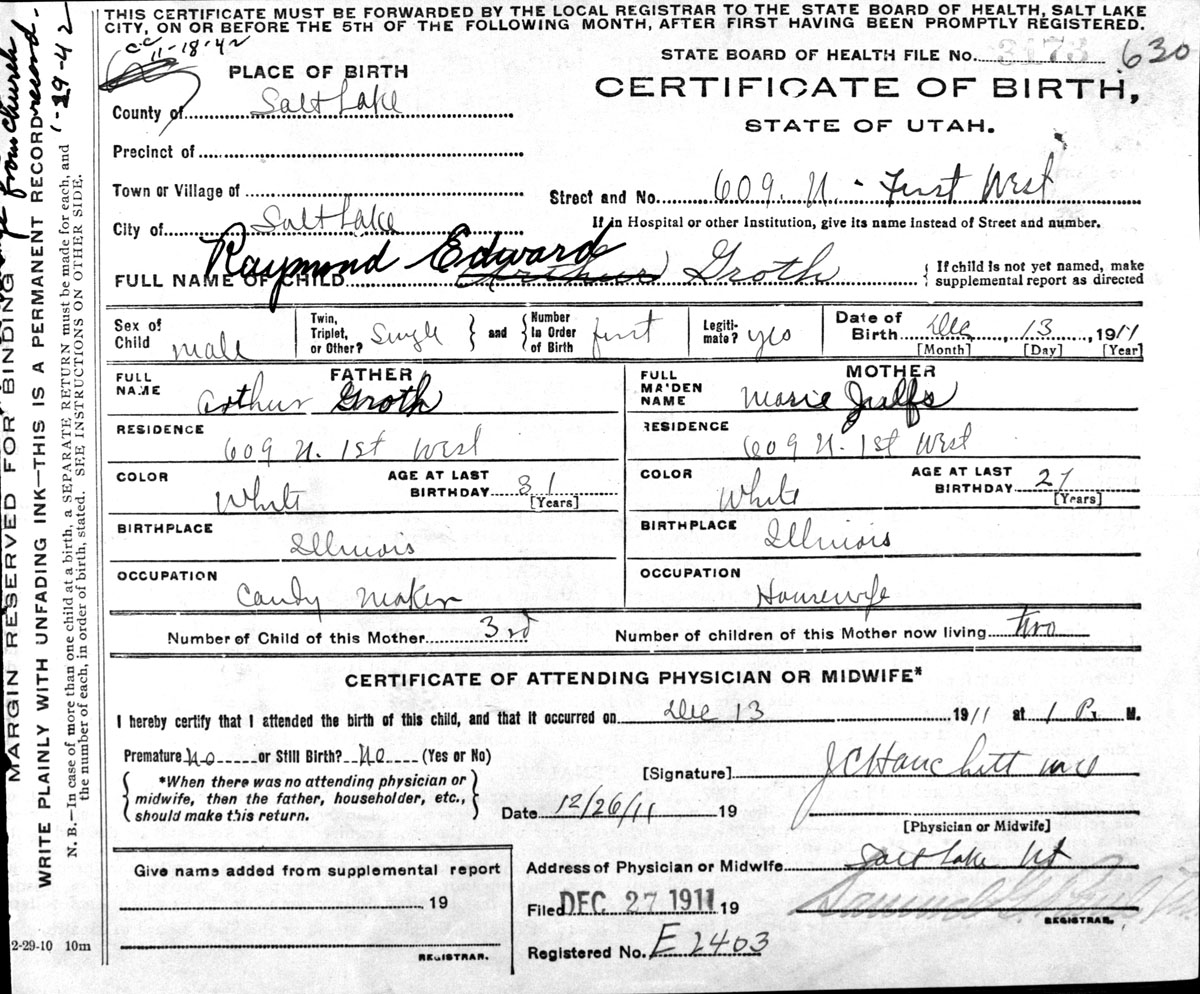 THIS CERTIFICATE MUST BE FORWARDED BY THE LOCAL REGISTRAR TO THE STATE BOARD OF HEALTH, SALT LAKE
CITY, ON OR BEFORE THE 5TH OF THE FOLLOWING MONTH, AFTER FIRST HAVING BEEN PROMPTLY REGISTERED.
cc 11-18-42
STATE BOARD OF HEALTH FILE No. 3173 630
PLACE OF BIRTH
CERTIFICATE OF BIRTH,
STATE OF UTAH.
County of Salt Lake
Precinct of
Town or Village of
Street and No. 609. N. First West
City of Salt Lake
If in Hospital or other Institution, give its name instead of Street and number.
Raymond Edward
FULL NAME OF CHILD Arthur Groth
If child is not yet named, make
supplemental report as directed
Sex of Child male
Twin, Triplet, or Other? Single and Number in Order of Birth first
Legitimate? yes
Date of Birth Dec, 13, 1911
[Month] [Day] [Year]
FATHER
FULL NAME Arthur Groth
RESIDENCE
609 N. 1st West
COLOR White
AGE AT LAST BIRTHDAY 31
[Years]
BIRTHPLACE
Illinois
OCCUPATION
Candy Maker
MOTHER
FULL MAIDEN NAME Marie
RESIDENCE
609 N. 1st West
COLOR White
AGE AT LAST BIRTHDAY 27
[Years]
BIRTHPLACE
Illinois
OCCUPATION
Housewife
Number of Child of this Mother 3rd
Number of children of this Mother now living two
CERTIFICATE OF ATTENDING PHYSICIAN OR MIDWIFE*
I hereby certify that I attended the birth of this child, and that it occurred on Dec 13 1911 at 1 P. M.
Premature No or Still Birth? No (Yes or No)
*When there was no attending physician or
midwife, then the father, householder, etc.,
should make this return.
[Signature] J C Hanchitt md
Date 12/26/11 19
[Physician or Midwife]
Give name added from supplemental report
19
REGISTRAR.
Address of Physician or Midwife Salt Lake Ut
Filed DEC 27 1911 19
Samuel G.
REGISTRAR.
Registered No. E 2403
2-29-10 10m
from church
record.
-29-42
MARGIN RESERVED FOR BINDING
WRITE PLAINLY WITH UNFADING INK—THIS IS A PERMANENT RECORD
N. B.—In case of more than one child at a birth, a SEPARATE RETURN must be made for each, and
the number of each, in order of birth, stated. SEE INSTRUCTIONS ON OTHER SIDE.